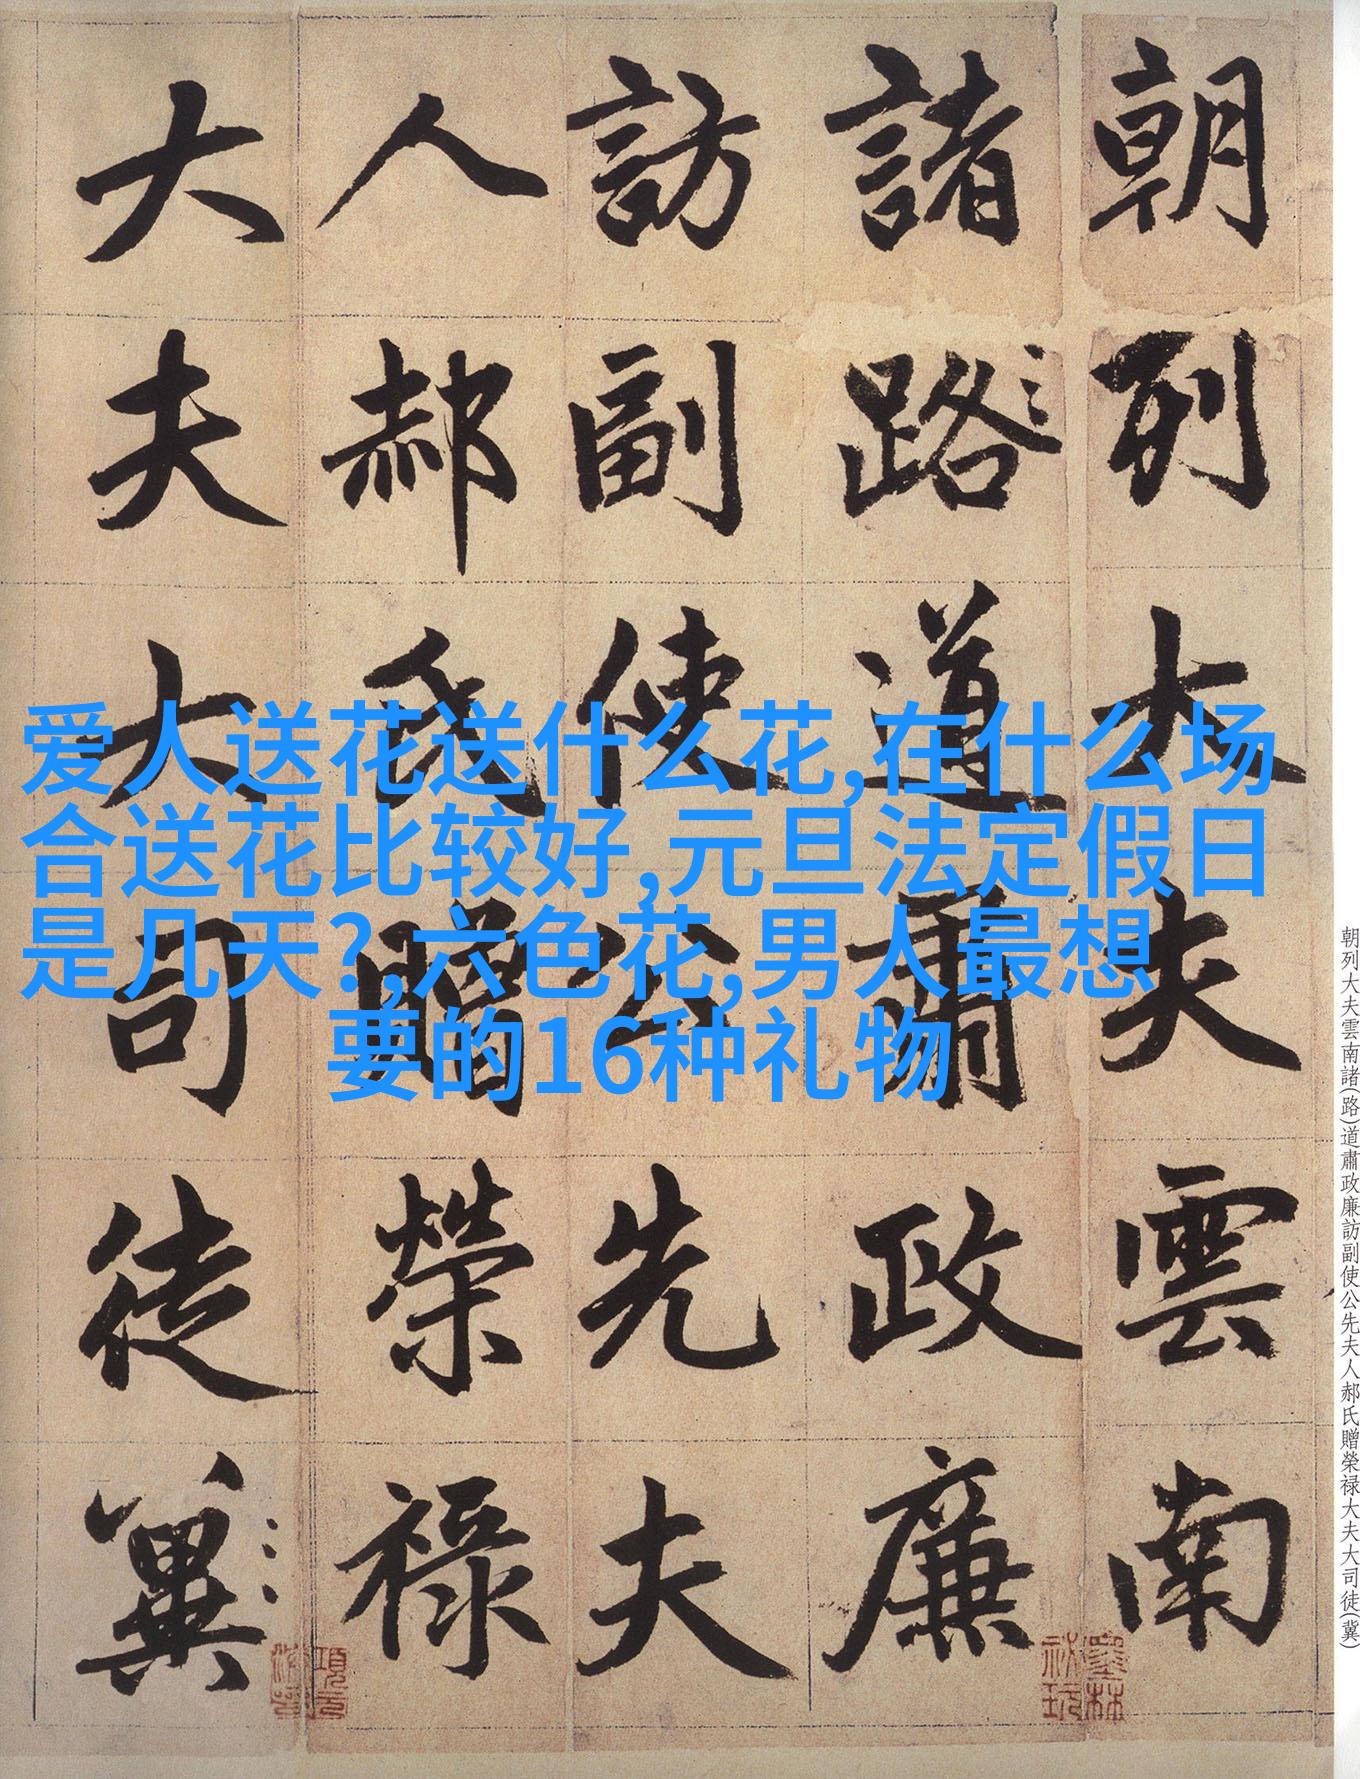 爱人送花送什么花,在什么场
合送花比较好,元旦法定假日
是几天?,六色花,男人最想
要的16种礼物
朝列大夫雲南
諸路道肅政廉
訪副使公先夫
人郝氏贈榮禄
大夫大司徒冀
朝列大夫雲南諸(路)道肅政廉訪副使公先夫人郝氏贈榮禄大夫大司徒(冀)